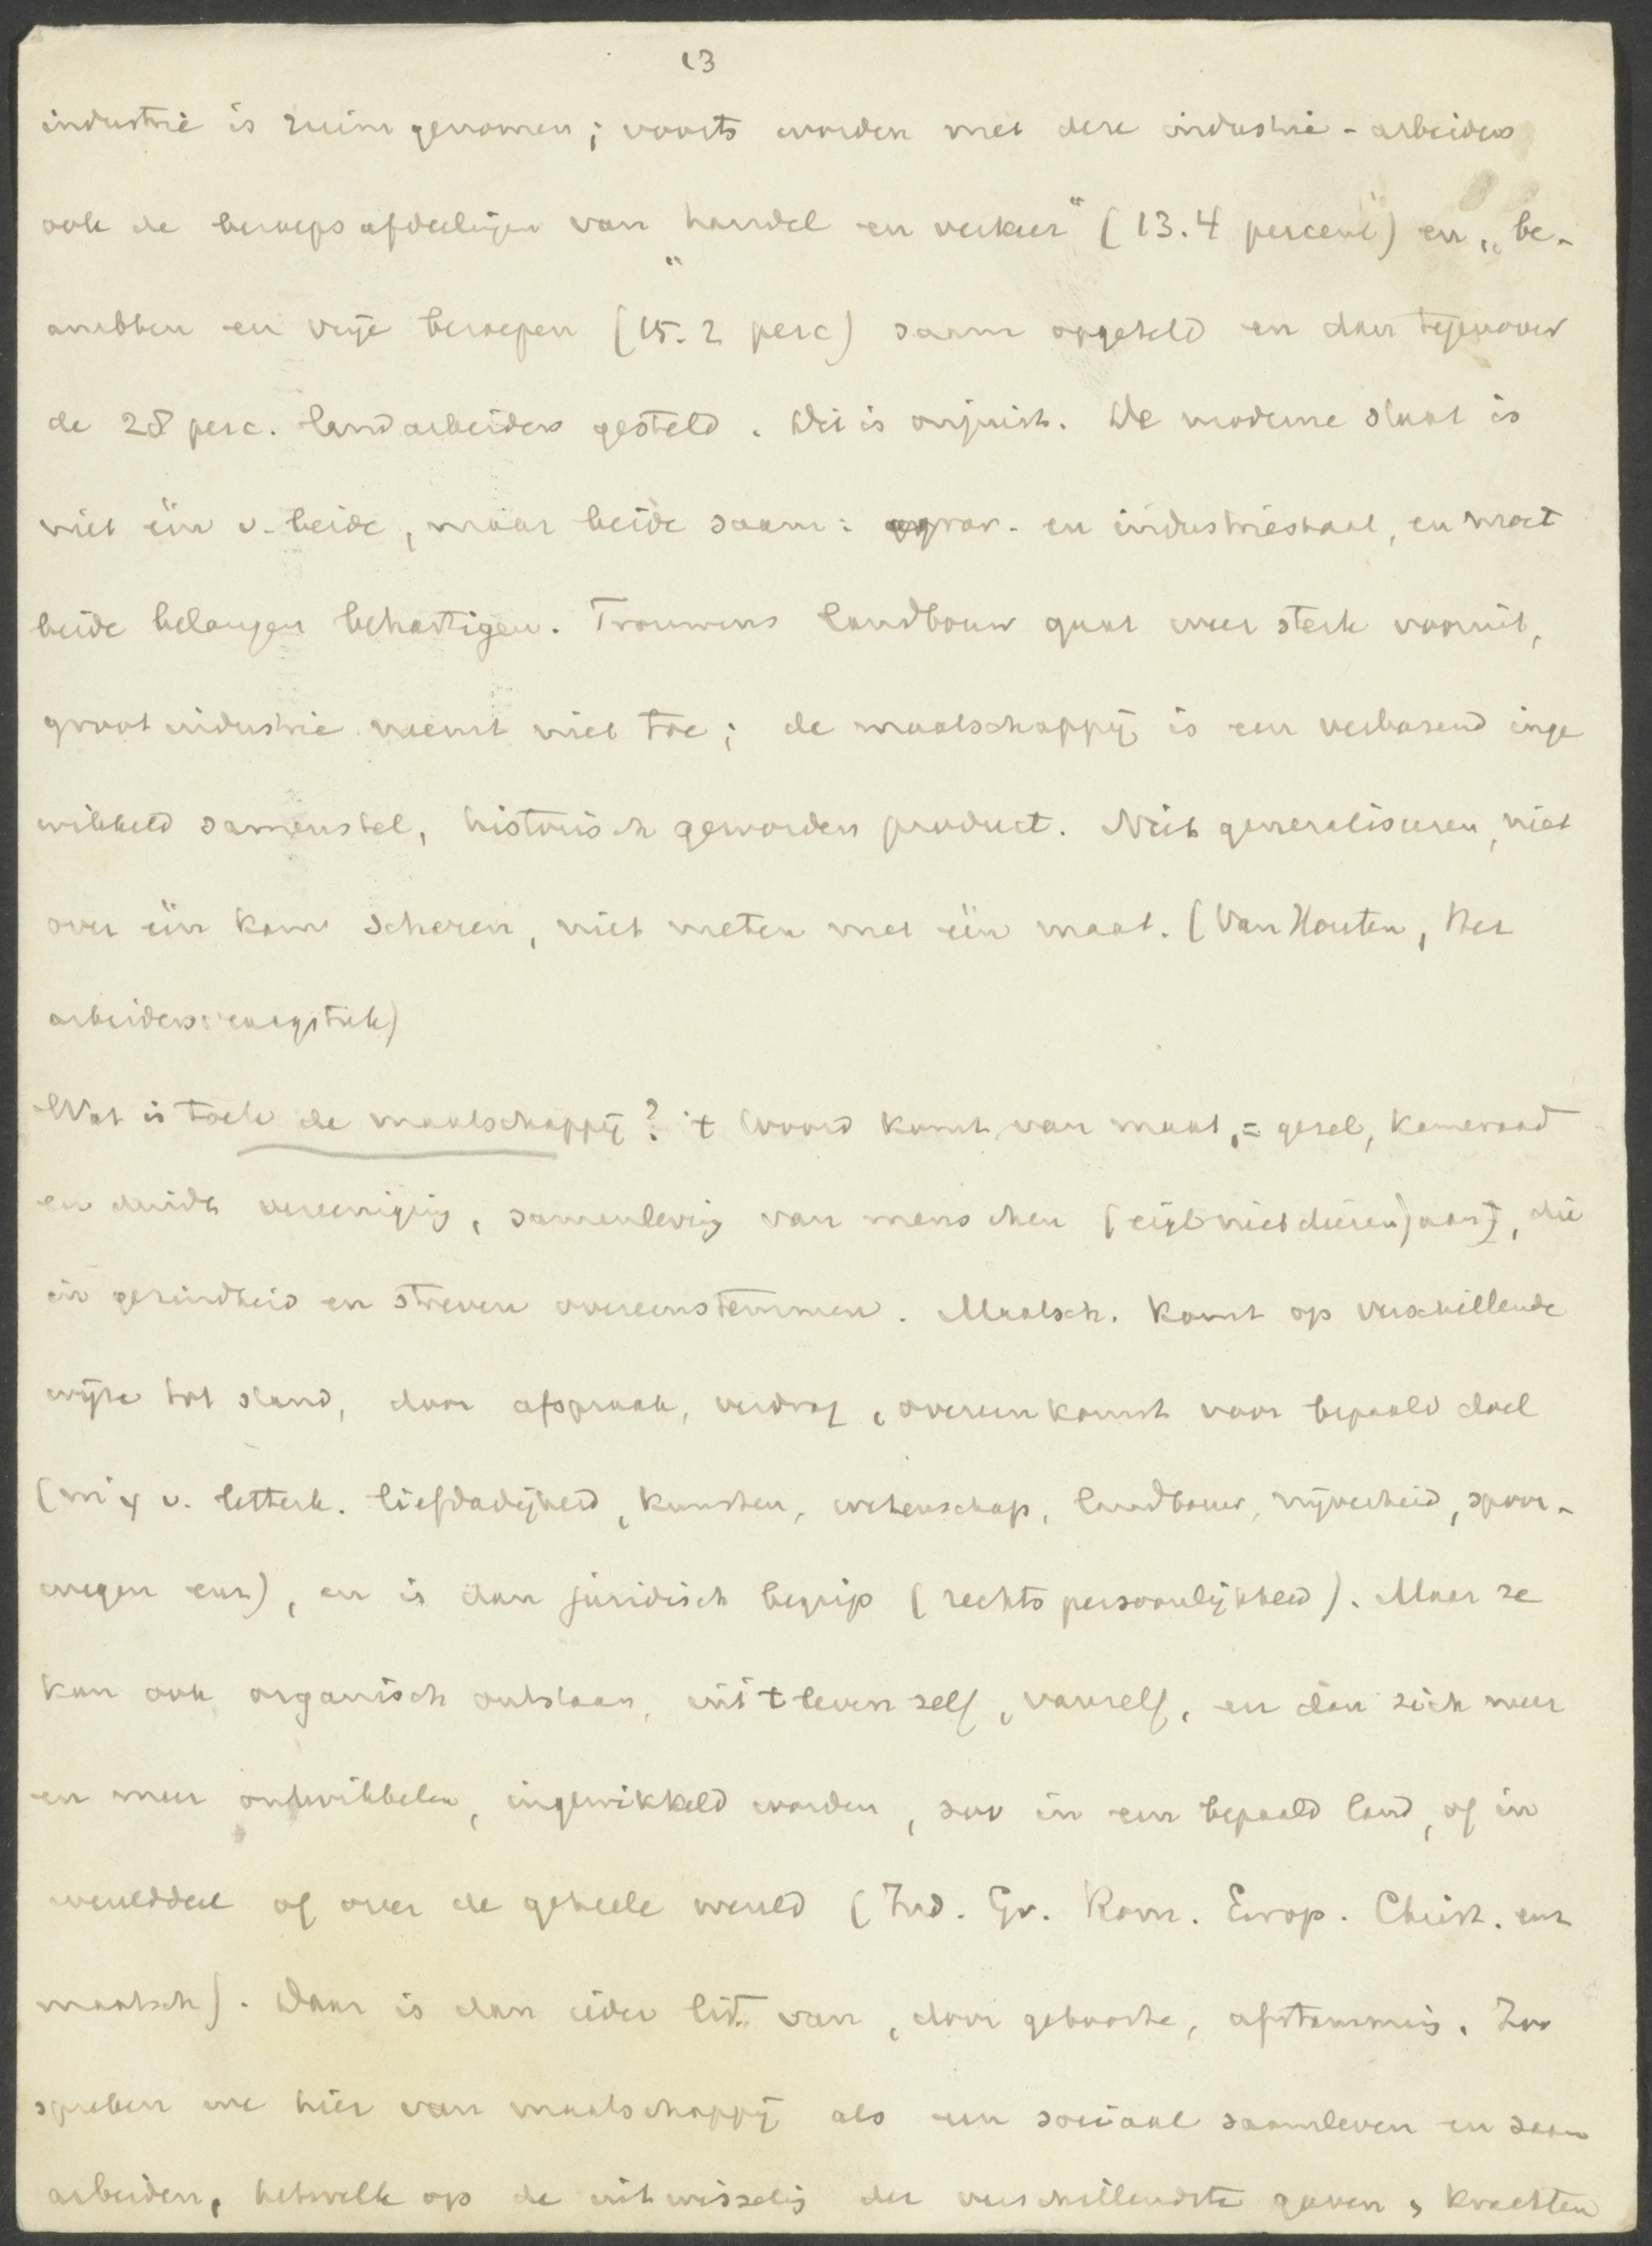 13
industrie is ruim genomen; voorts worden met deze industrie-arbeiders
ook de beroepsafdeelingen van „handel en verkeer" (13.4 percent) en „be-
ambten en vrije beroepen" (15.2 perc) saam opgeteld en dan tegenover
de 28 perc. landarbeiders gesteld. Dit is onjuist. De moderne staat is
niet één v. beide, maar beide saam: agrar- en industriestaat, en moet
beide belangen behartigen. Trouwens landbouw gaat weer sterk vooruit,
grootindustrie neemt niet toe; de maatschappij is een verbazend inge
wikkeld samenstel, historisch geworden product. Niet generaliseeren, niet
over één kam scheren, niet meten met één maat. (Van Houten, Het
arbeidersvraagstuk)
Wat is toch de maatschappij? 't Woord komt van maat, = gezel, kameraad
en duidt vereeniging, samenleving van menschen (eigl niet dieren) aan, die
in gezindheid en streven overeenstemmen. Maatsch. komt op verschillende
wijze tot stand, door afspraak, verdrag, overeenkomst voor bepaald doel
(mij v. letterk. liefdadigheid, kunsten, wetenschap, landbouw, nijverheid, spoor-
wegen enz), en is dan juridisch begrip (rechtspersoonlijkheid). Maar ze
kan ook organisch ontstaan, uit 't leven zelf, vanzelf, en dan zich meer
en meer ontwikkelen, ingewikkeld worden, zoo in een bepaald land, of in
werelddeel of over de geheele wereld (Ind. Gr. Rom. Europ. Christ. enz
maatsch). Daar is dan ieder lid van, door geboorte, afstamming. Zoo
spreken we hier van maatschappij als een sociaal saamleven en saam
arbeiden, hetwelk op de uitwisseling der verschillendste gaven, krachten